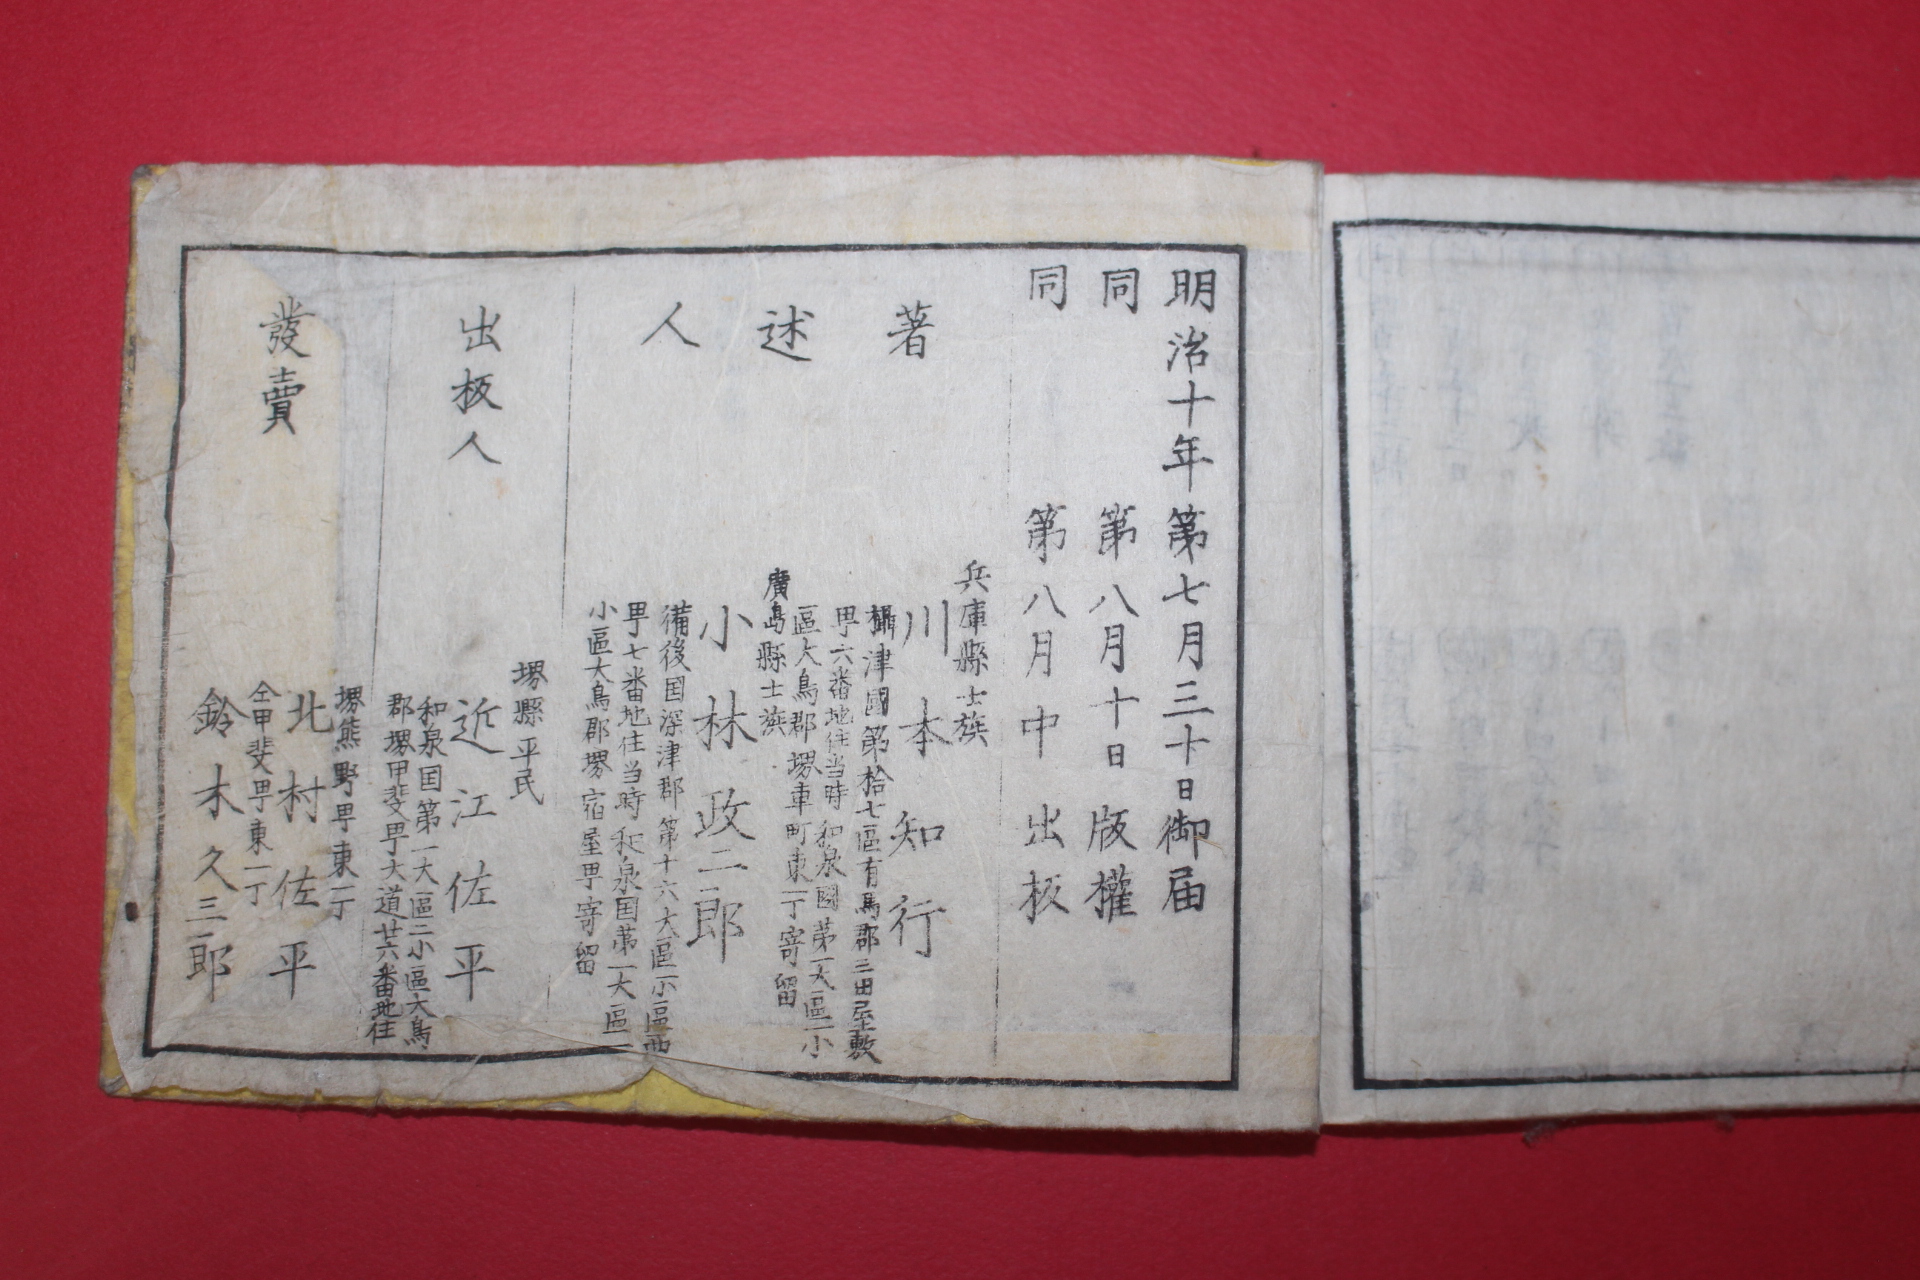 明治十年第七月三十日御届
同　第八月十日版權
同　第八月中出板
著述人
兵庫縣士族
川本知行
攝津國第拾七區有馬郡三田屋敷
甼六番地住当時和泉國第一大區一小
區大鳥郡堺車町東一丁寄留
廣島縣士族
小林政二郎
備後国深津郡第十六大區一小區西
甼七番地住当時和泉国第一大區一
小區大鳥郡堺宿屋甼寄留
出板人
堺縣平民
近江佐平
和泉国第一大區二小區大鳥
郡堺甲斐甼大道廿六番地住
發賣
堺熊野甼東一丁
北村佐平
仝甲斐甼東一丁
鈴木久三郎